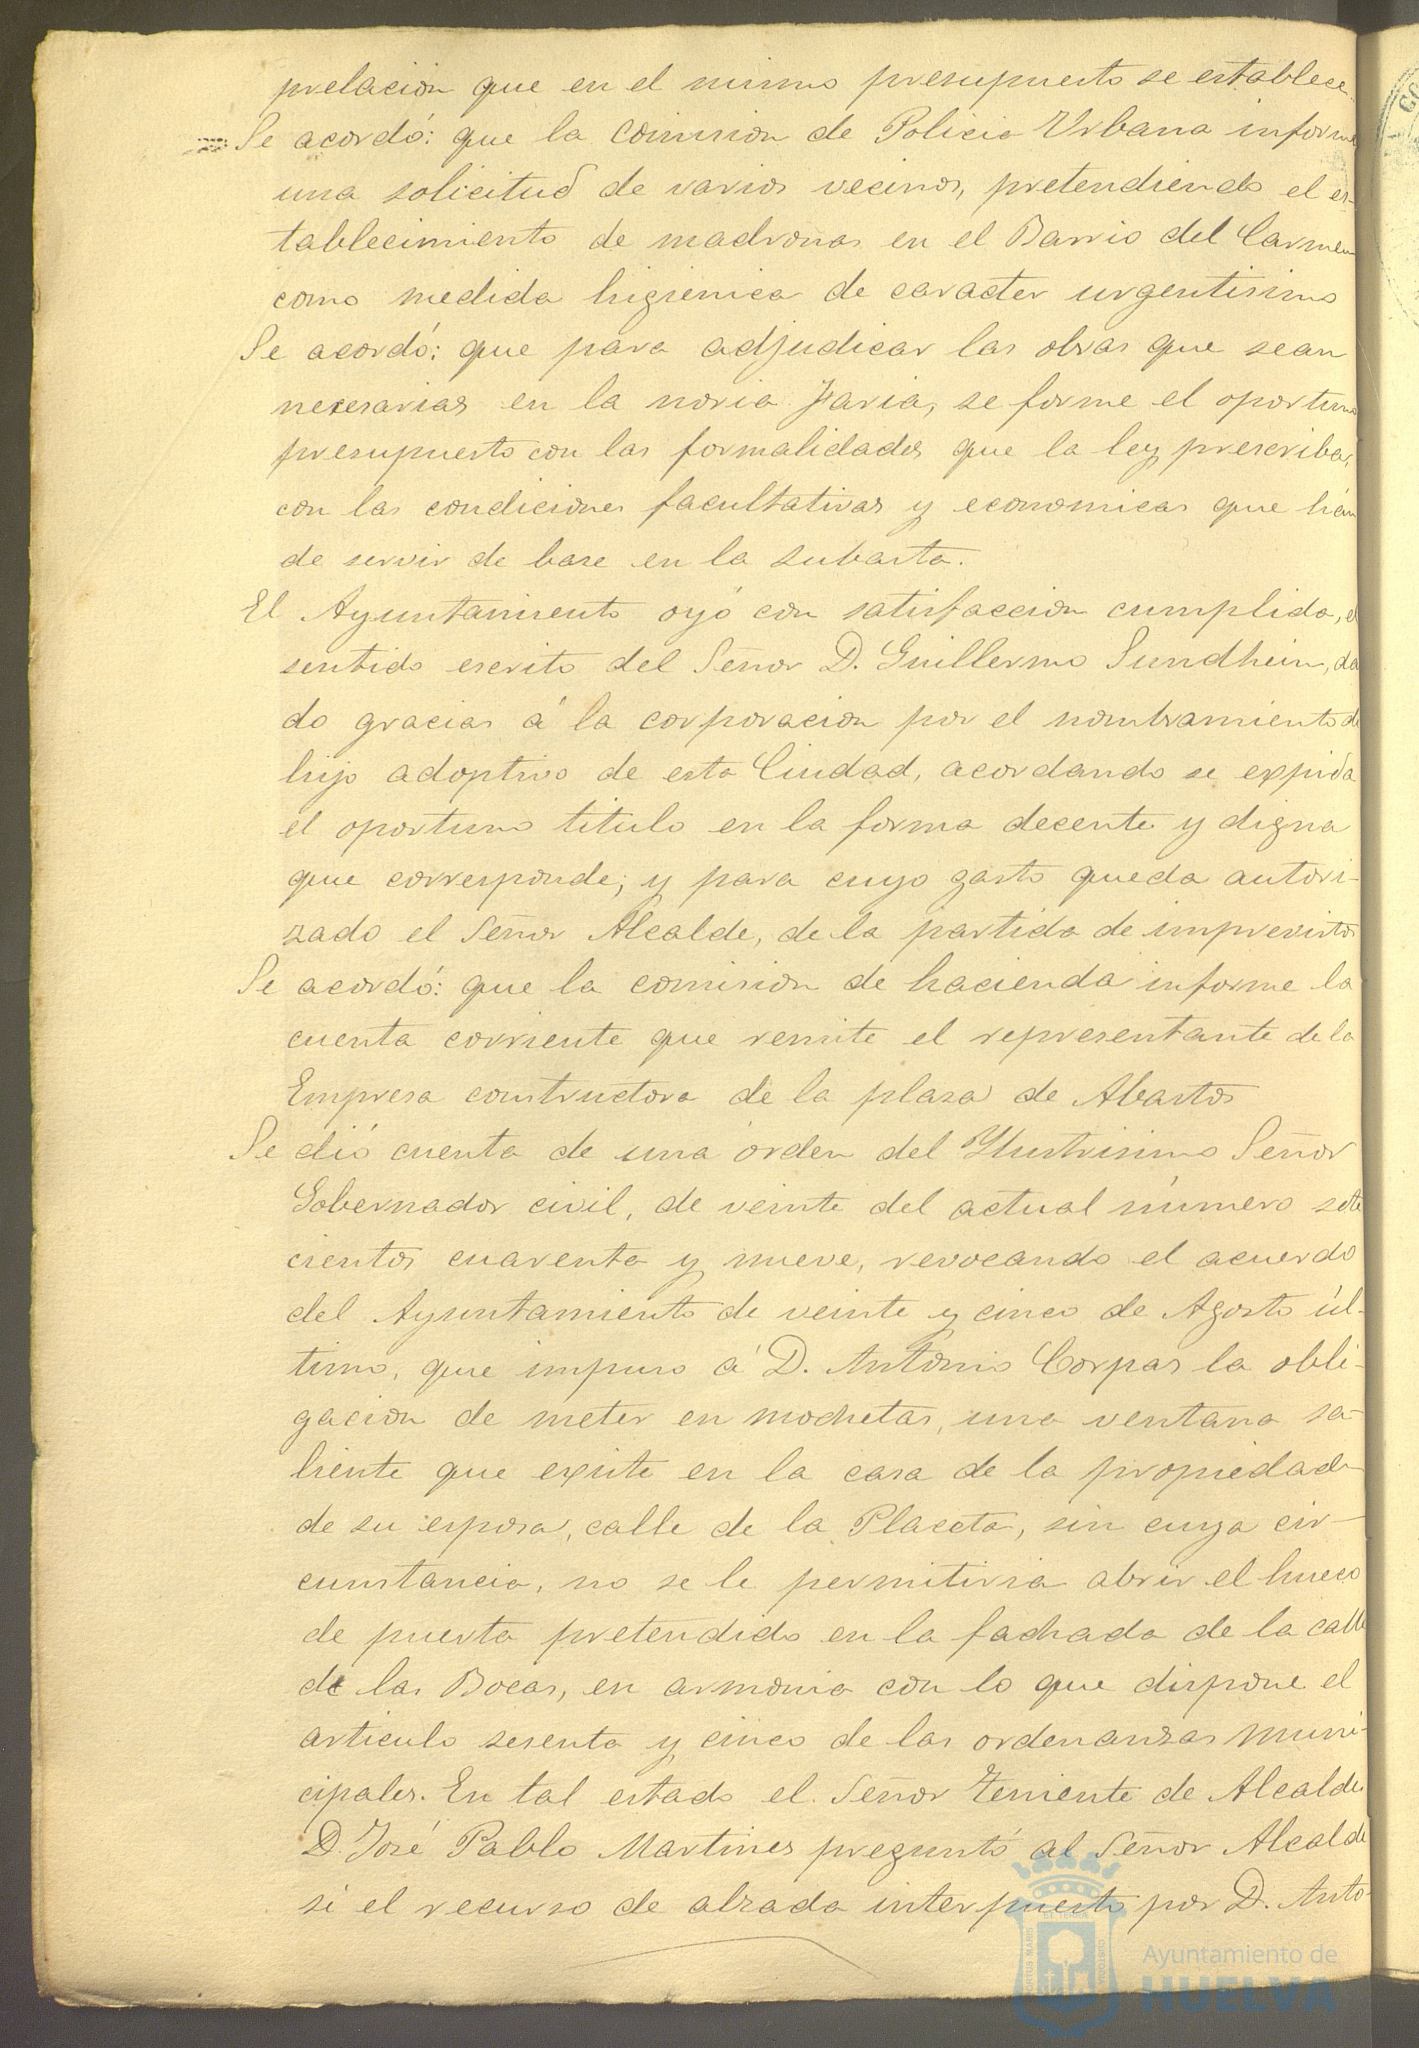 prelacion que en el mismo presupuesto se establece.
Se acordó: que la comision de Policia Urbana informe
una solicitud de varios vecinos, pretendiendo el es-
tablecimiento de madronas en el Barrio del Carmen
como medida higienica de caracter urgentisimo
Se acordó: que para adjudicar las obras que sean
necesarias en la noria Jaria, se forme el oportuno
presupuesto con las formalidades que la ley prescribe,
con las condiciones facultativas y economicas que hán
de servir de base en la subasta.
El Ayuntamiento oyó con satisfaccion cumplida, el
sentido escrito del Señor D. Guillermo Sundhein, dan
do gracias á la corporacion por el nombramiento de
hijo adoptivo de esta Ciudad, acordando se expida
el oportuno titulo en la forma decente y digna
que corresponde; y para cuyo gasto queda autori-
zado el Señor Alcalde, de la partida de imprevistos
Se acordó: que la comision de hacienda informe la
cuenta corriente que remite el representante de la
Empresa constructora de la plaza de Abastos
Se dió cuenta de una órden del Ylustrisimo Señor
Gobernador civil, de veinte del actual número sete
cientos cuarenta y nueve, revocando el acuerdo
del Ayuntamiento de veinte y cinco de Agosto úl-
timo, que impuso á D. Antonio Corpas la obli-
gacion de meter en mochetas, una ventana sa-
liente que existe en la casa de la propiedad
de su esposa, calle de la Placeta, sin cuya cir-
cunstancia, no se le permitiria abrir el hueco
de puerta pretendido en la fachada de la calle
de las Bocas, en armonia con lo que dispone el
articulo sesenta y cinco de las ordenanzas muni-
cipales. En tal estado el Señor Teniente de Alcalde
D. José Pablo Martinez preguntó al Señor Alcalde
si el recurso de alzada interpuesto por D. Anto-
Ayuntamiento de
HUELVA